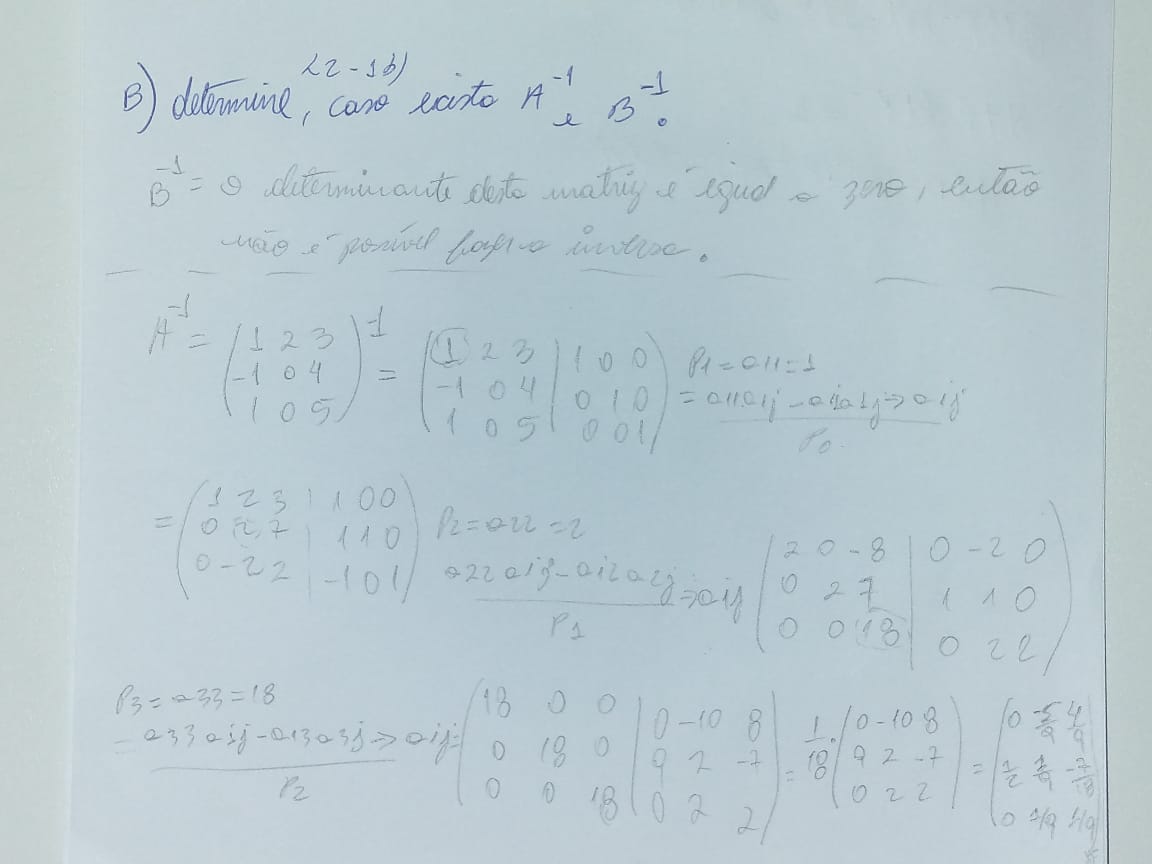 L2-1b)
B) determine, caso exista A⁻¹ e B⁻¹.
B⁻¹ = o determinante desta matriz é igual a zero, então
não é possível fazer a inversa.
A⁻¹ = (1 2 3 / -1 0 4 / 1 0 5)⁻¹ = (1 2 3 | 1 0 0 / -1 0 4 | 0 1 0 / 1 0 5 | 0 0 1) P1 = a11 = 1
= a11aij - ai1a1j → aij
P0
= (1 2 3 | 1 0 0 / 0 2 7 | 1 1 0 / 0 -2 2 | -1 0 1) P2 = a22 = 2
a22aij - ai2a2j → aij (2 0 -8 | 0 -2 0 / 0 2 7 | 1 1 0 / 0 0 18 | 0 2 2)
P1
P3 = a33 = 18
= a33aij - ai3a3j → aij = (18 0 0 | 0 -10 8 / 0 18 0 | 9 2 -7 / 0 0 18 | 0 2 2) = 1/18 · (0 -10 8 / 9 2 -7 / 0 2 2) = (0 -5/9 4/9 / 1/2 1/9 -7/18 / 0 1/9 1/9)
P2